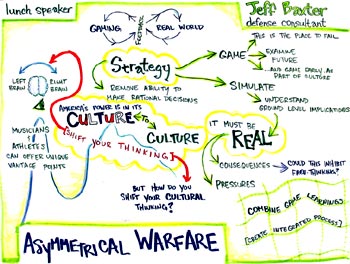 lunch speaker
Jeff Baxter
defense consultant
GAMING
FEEDBACK
REAL WORLD
THIS IS THE PLACE TO FAIL
GAME
EXAMINE
FUTURE
...AND GAME DRAW AS
PART OF CULTURE
Strategy
REMOVE ABILITY TO
MAKE RATIONAL DECISIONS
SIMULATE
UNDERSTAND
GROUND LEVEL IMPLICATIONS
LEFT
BRAIN
RIGHT
BRAIN
AMERICA'S POWER IS IN ITS
CULTURE
TO
CULTURE
[SHIFT YOUR THINKING]
MUSICIANS
ATHLETES
CAN OFFER UNIQUE
VANTAGE POINTS
IT MUST BE
REAL
CONSEQUENCES
COULD THIS INHIBIT
FREE-THINKING?
PRESSURES
BUT HOW DO YOU
SHIFT YOUR CULTURAL
THINKING?
COMBINE GAME LEARNINGS
[CREATE INTEGRATED PROCESS]
ASYMMETRICAL WARFARE